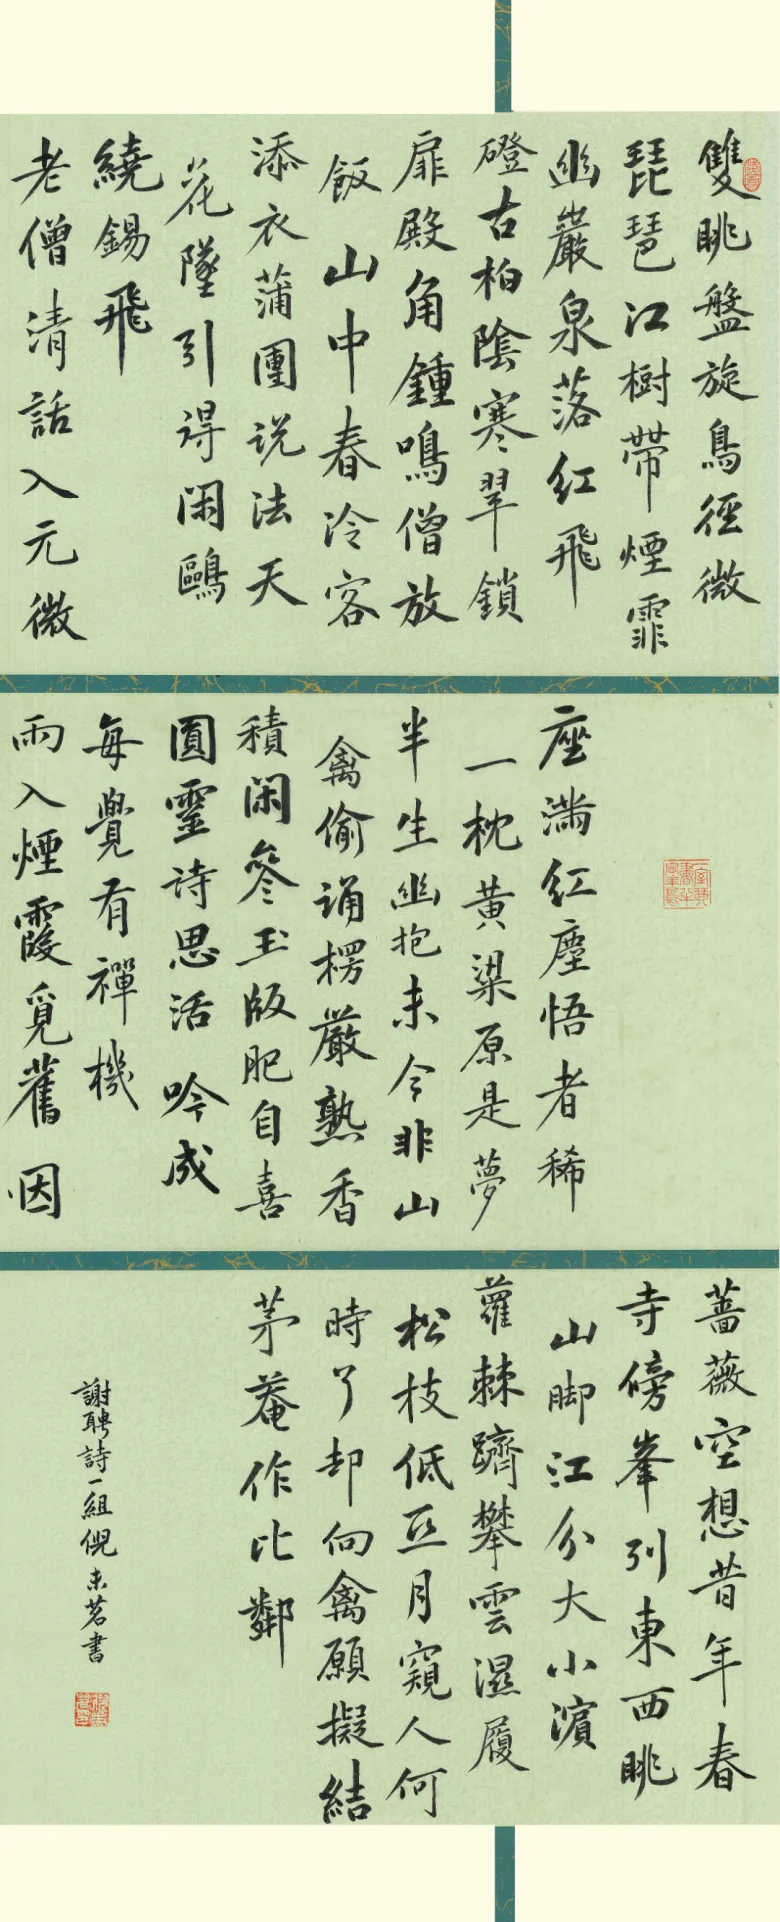 雙眺盤旋鳥徑微
琵琶江樹帶煙霏
幽巖泉落紅飛
磴古柏陰寒翠鎖
扉殿角鍾鳴僧放
飯山中春冷客
添衣蒲團说法天
花墜引得闲鷗
繞錫飛
老僧清話入元微
座滿紅塵悟者稀
一枕黃粱原是夢
半生幽抱未今非山
禽偷誦楞嚴熟香
積闲參玉版肥自喜
圓靈詩思活吟成
每覺有禪機
雨入煙霞覓舊因
薔薇空想昔年春
寺傍峯列東西眺
山脚江分大小濵
蘿棘躋攀雲濕履
松枝低亞月窺人何
時了却向禽願擬結
茅菴作比鄰
謝聘詩一組倪未茗書